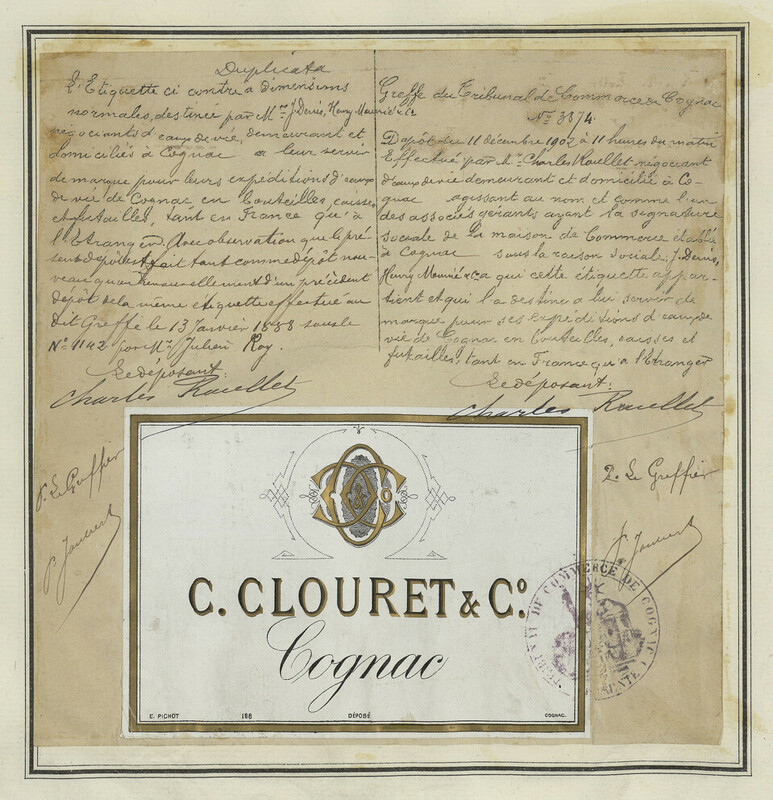 Duplicata
L'Etiquette ci contre a dimensions
normales, destinée par Mrs J. Denis, Henry Mounié & Co
négociants d'eaux de vie, demeurant et
domiciliés à Cognac à leur servir
de marque pour leurs expéditions d'eaux
de vie de Cognac en bouteilles, caisses
et futailles, tant en France qu'à
l'Etranger. Avec observation que le pré-
sent dépôt est fait tant comme dépôt nou-
veau qu'en renouvellement d'un précédent
dépôt de la même étiquette effectué au
dit Greffe le 13 Janvier 1888 sous le
No 1142 par Mr Julien Roy.
Le déposant:
Charles Roullet
Greffe du Tribunal de Commerce de Cognac
No 3374.
Dépôt du 11 décembre 1902 à 11 heures du matin
Effectué par Mr Charles Roullet négociant
d'eaux de vie demeurant et domicilié à Co-
gnac agissant au nom et comme l'un
des associés gérants ayant la signature
sociale de la maison de Commerce établie
à Cognac sous la raison sociale; J. Denis,
Henry Mounié & Co a qui cette étiquette appar-
tient et qui l'a destinée a lui servir de
marque pour ses expéditions d'eaux de
vie de Cognac en bouteilles, caisses et
futailles, tant en France qu'a l'Etranger
Le déposant:
Charles Roullet
p. Le Greffier
Le Greffier
C. CLOURET & Co.
Cognac
E. PICHOT
188
DÉPOSÉ
COGNAC.
TRIBUNAL DE COMMERCE DE COGNAC